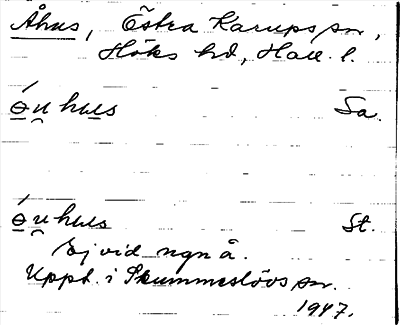 Åhus, Östra Karups sn,
Höks hd, Hall. l.
ɵ́u̯hus Sa.
ɵ́u̯hus St.
Ej vid ngn å.
Uppt. i Skummeslövs sn.
1947.